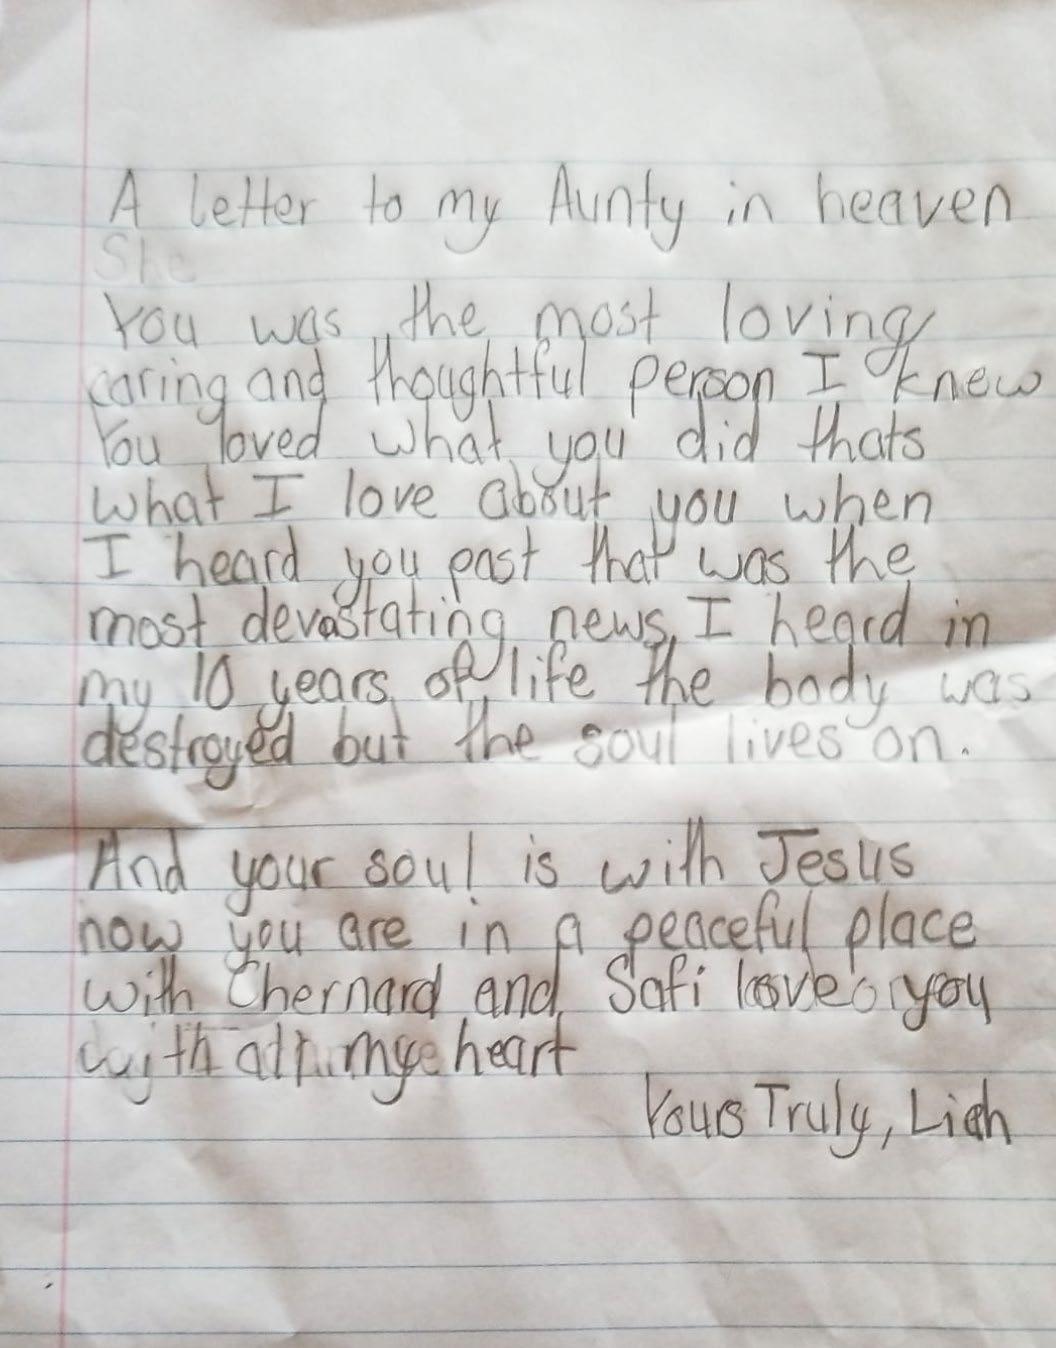 A letter to my Aunty in heaven
She
You was the most loving
caring and thoughtful person I knew
You loved what you did thats
what I love about you when
I heard you past that was the
most devastating news I heard in
my 10 years of life the body was
destroyed but the soul lives on.
And your soul is with Jesus
now you are in a peaceful place
with Chernard and Safi love you
with all my heart
Yours Truly, Liah